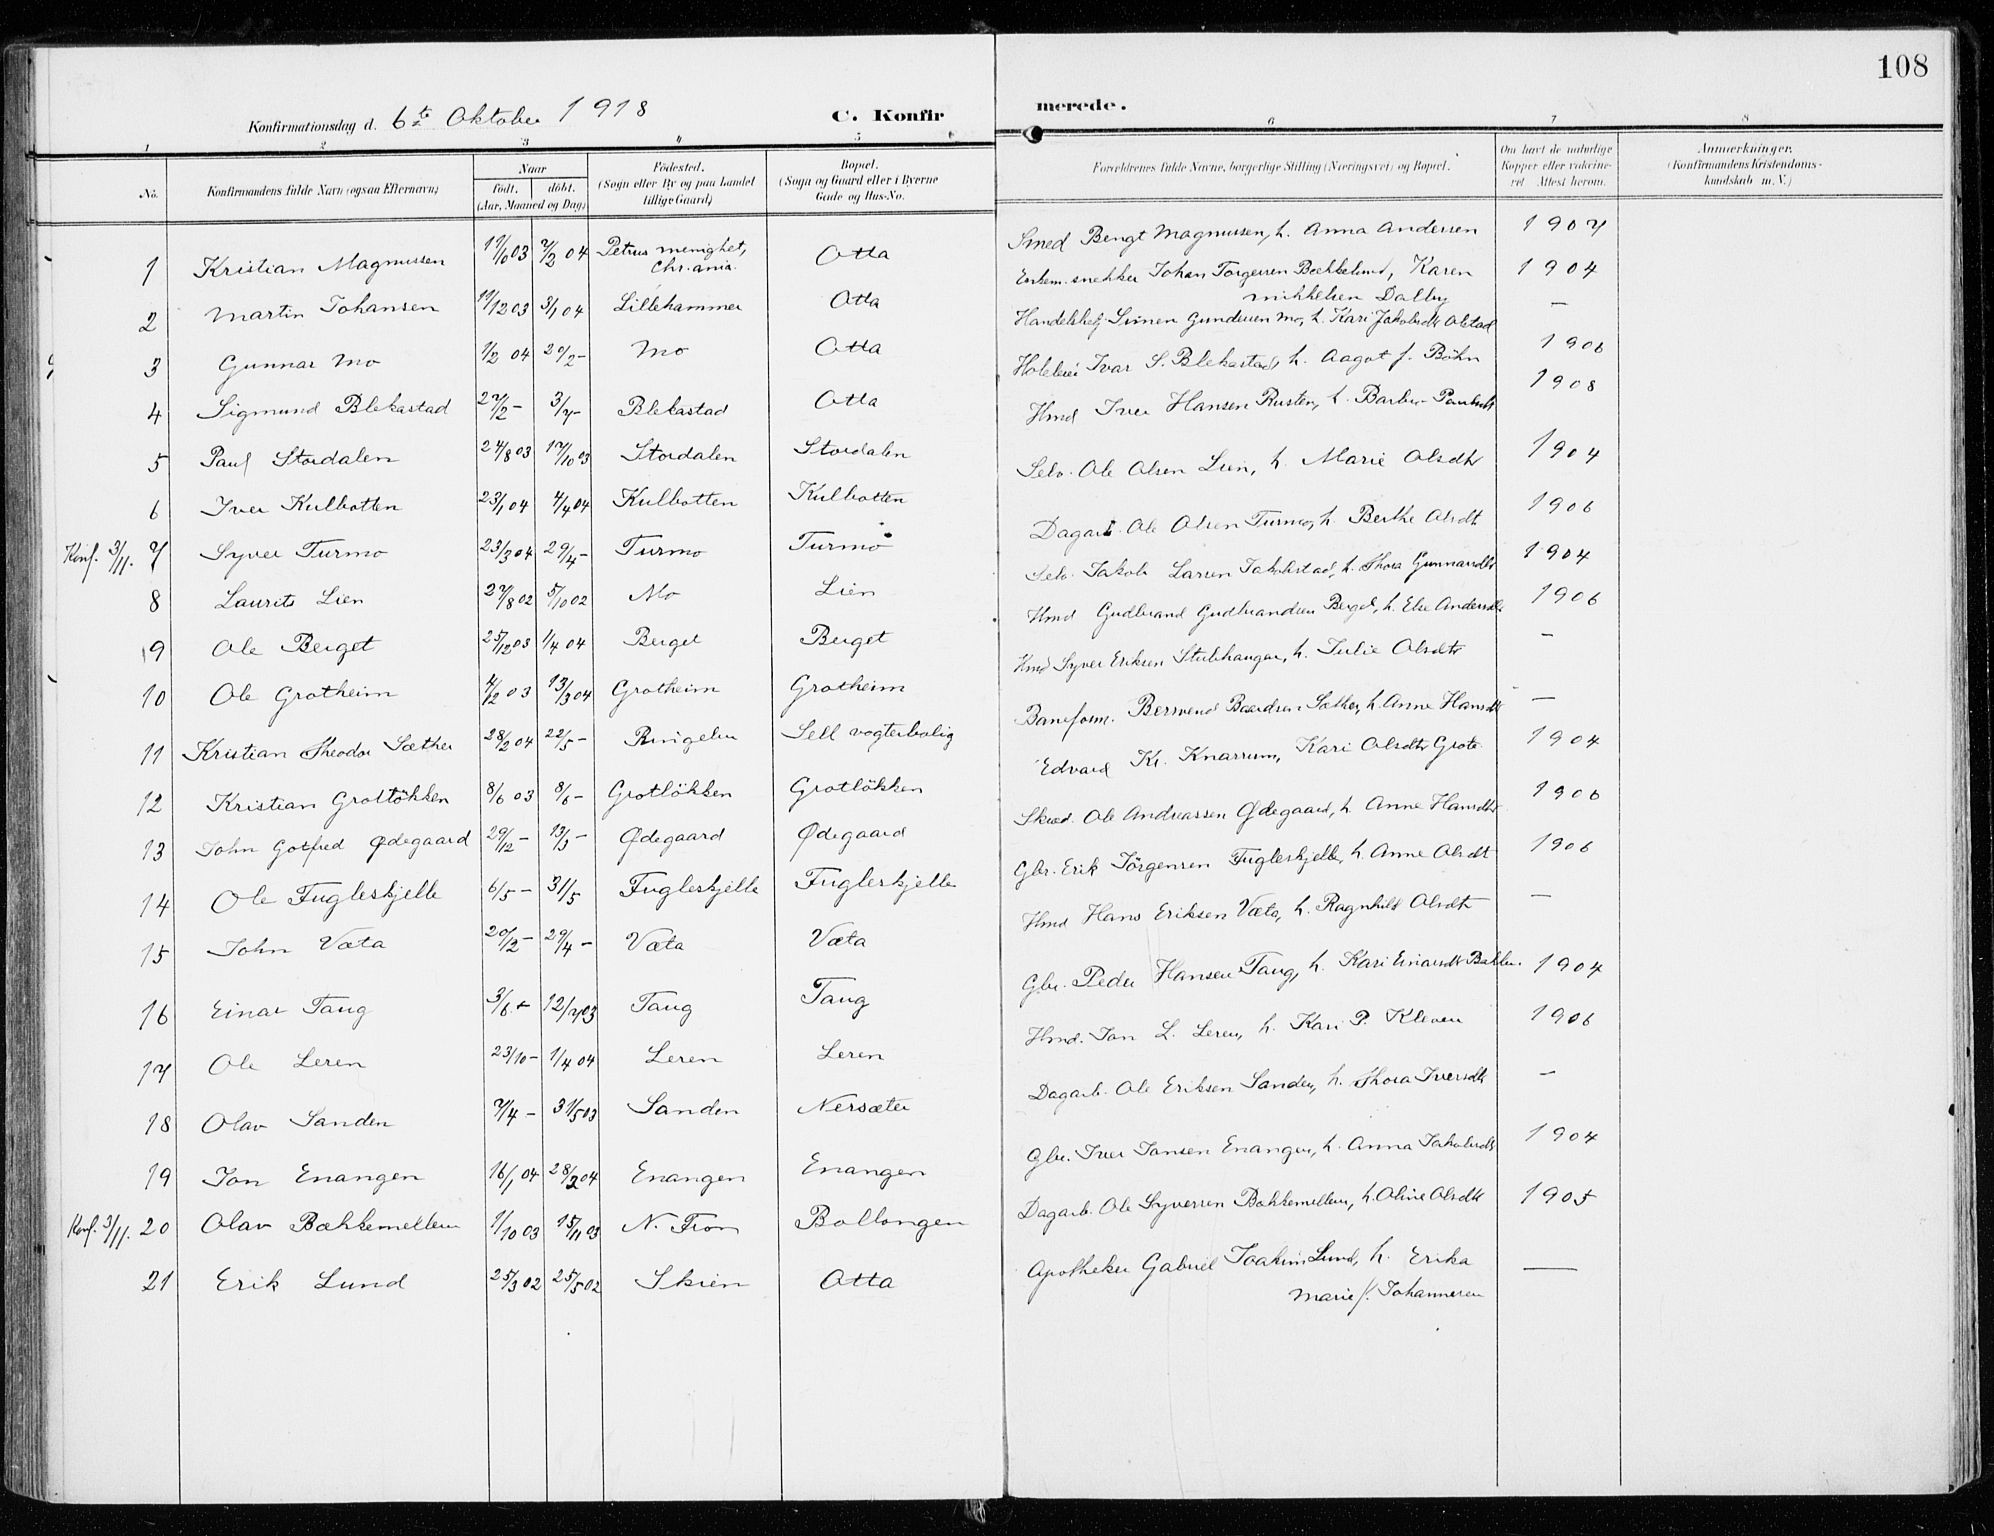 108
Konfirmationsdag d. 6te Oktober 1918 C. Konfirmerede.
1 2 3 4 5 6 7 8
No. Konfirmandens fulde Navn (ogsaa Efternavn) Naar født. døbt. (Aar, Maaned og Dag) Fødested. (Sogn eller By og paa Landet tillige Gaard) Bopæl. (Sogn og Gaard eller i Byerne Gade og Hus-No. Forældrenes fulde Navne, borgerlige Stilling (Næringsvei) og Bopæl. Om havt de naturlige Kopper eller vakcineret Attest herom. Anmerkninger. (Konfirmandens Kristendomskundskab m. V.)
1 Kristian Magnussen 03 7/2 04 Petrus menighet, Chr.ania. Otta Smed Bengt Magnussen, h. Anna Andersen 1907
2 Martin Johansen 11/12 03 3/1 04 Lillehammer Otta snekker Johan Torgersen Bækkelund, Karen Mikkelsen Dalby 1904
3 Gunnar Mo 1/2 04 20/2 – Mo Otta Simen Gundersen Mo, h. Kari Jakobsdt Olstad –
4 Sigmund Blekastad 27/2 – 3/7 – Blekastad Otta Ivar S. Blekastad, h. Aagot f. Bøhn 1906
5 Paul Stordalen 24/8 03 17/10 03 Stordalen Stordalen Hmd Iver Hansen Rusten, h. Barbro Paulsdt 1908
6 Iver Kulbotten 23/1 04 4/4 04 Kulbotten Kulbotten Selv. Ole Olsen Lien, h. Marie Olsdtr 1904
Konf. 3/11. 7 Syver Turmo 23/3 04 29/4 – Turmo Turmo Dagarb. Ole Olsen Turmo, h. Berthe Olsdt 1906
8 Laurits Lien 27/8 02 5/10 02 Mo Lien Selv. Jakob Larsen Jakobstad, h. Thora Gunnarsdtr 1904
9 Ole Berget 25/12 03 1/4 04 Berget Berget Hmd Gudbrand Gudbrandsen Berget, h. Else Andersdt. 1906
10 Ole Grotheim 4/12 03 13/3 04 Grotheim Grotheim Hmd Syver Eriksen Stubhaugen, h. Julie Olsdtr –
11 Kristian Theodor Sæther 28/2 04 22/5 – Ringebu Sell vogterbolig Baneform. Bersvend Baardsen Sæther, h. Anne Hansdt –
12 Kristian Grotløkken 8/6 03 8/6 – Grotløkken Grotløkken Edvard Kr. Knarrum, Kari Olsdtr Grote 1904
13 John Gotfred Ødegaard 29/12 – 13/3 – Ødegaard Ødegaard Skræd. Ole Andreassen Ødegaard, h. Anne Hansdtr 1906
14 Ole Fugleskjelle 6/5 – 31/5 Fugleskjelle Fugleskjelle Gbr. Erik Jørgensen Fugleskjelle, h. Anne Olsdt 1906
15 John Væta 20/2 – 29/4 – Væta Væta Hmd Hans Eriksen Væta, h. Ragnhild Olsdt –
16 Einar Taug 3/6 – 12/7 03 Taug Taug Gbr. Peder Hansen Taug, h. Kari Einarsdt Bakken. 1904
17 Ole Leren 23/10 – 1/4 04 Leren Leren Hmd. Jon L. Leren, h. Kari P. Kleven 1906
18 Olav Sanden 7/4 – 31/5 03 Sanden Nersæter Dagarb. Ole Eriksen Sanden, h. Thora Iversdt –
19 Jon Enangen 16/1 04 28/2 04 Enangen Enangen Gbr. Iver Jonsen Enangen, h. Anna Jakobsdt 1904
Konf. 3/11. 20 Olav Bækkemellem 1/10 03 15/11 03 N. Fron Bollongen Dagarb. Ole Syversen Bækkemellem, h. Oline Olsdt 1905
21 Erik Lund 25/3 02 25/5 02 Skien Otta Apotheker Gabriel Joakim Lund, h. Erika Marie f. Johannesen –